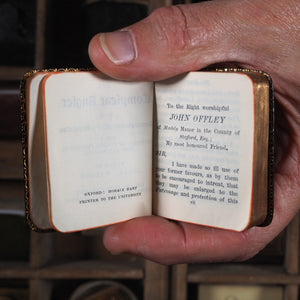 OXFORD: HORACE HART
PRINTER TO THE UNIVERSITY
To the Right worshipful
JOHN OFFLEY
of Madely Manor in the County of
Stafford, Esq.;
My most honoured Friend,
SIR,
I have made so ill use of
your former favours, as by them
to be encouraged to intreat, that
they may be enlarged to the
Patronage and protection of this